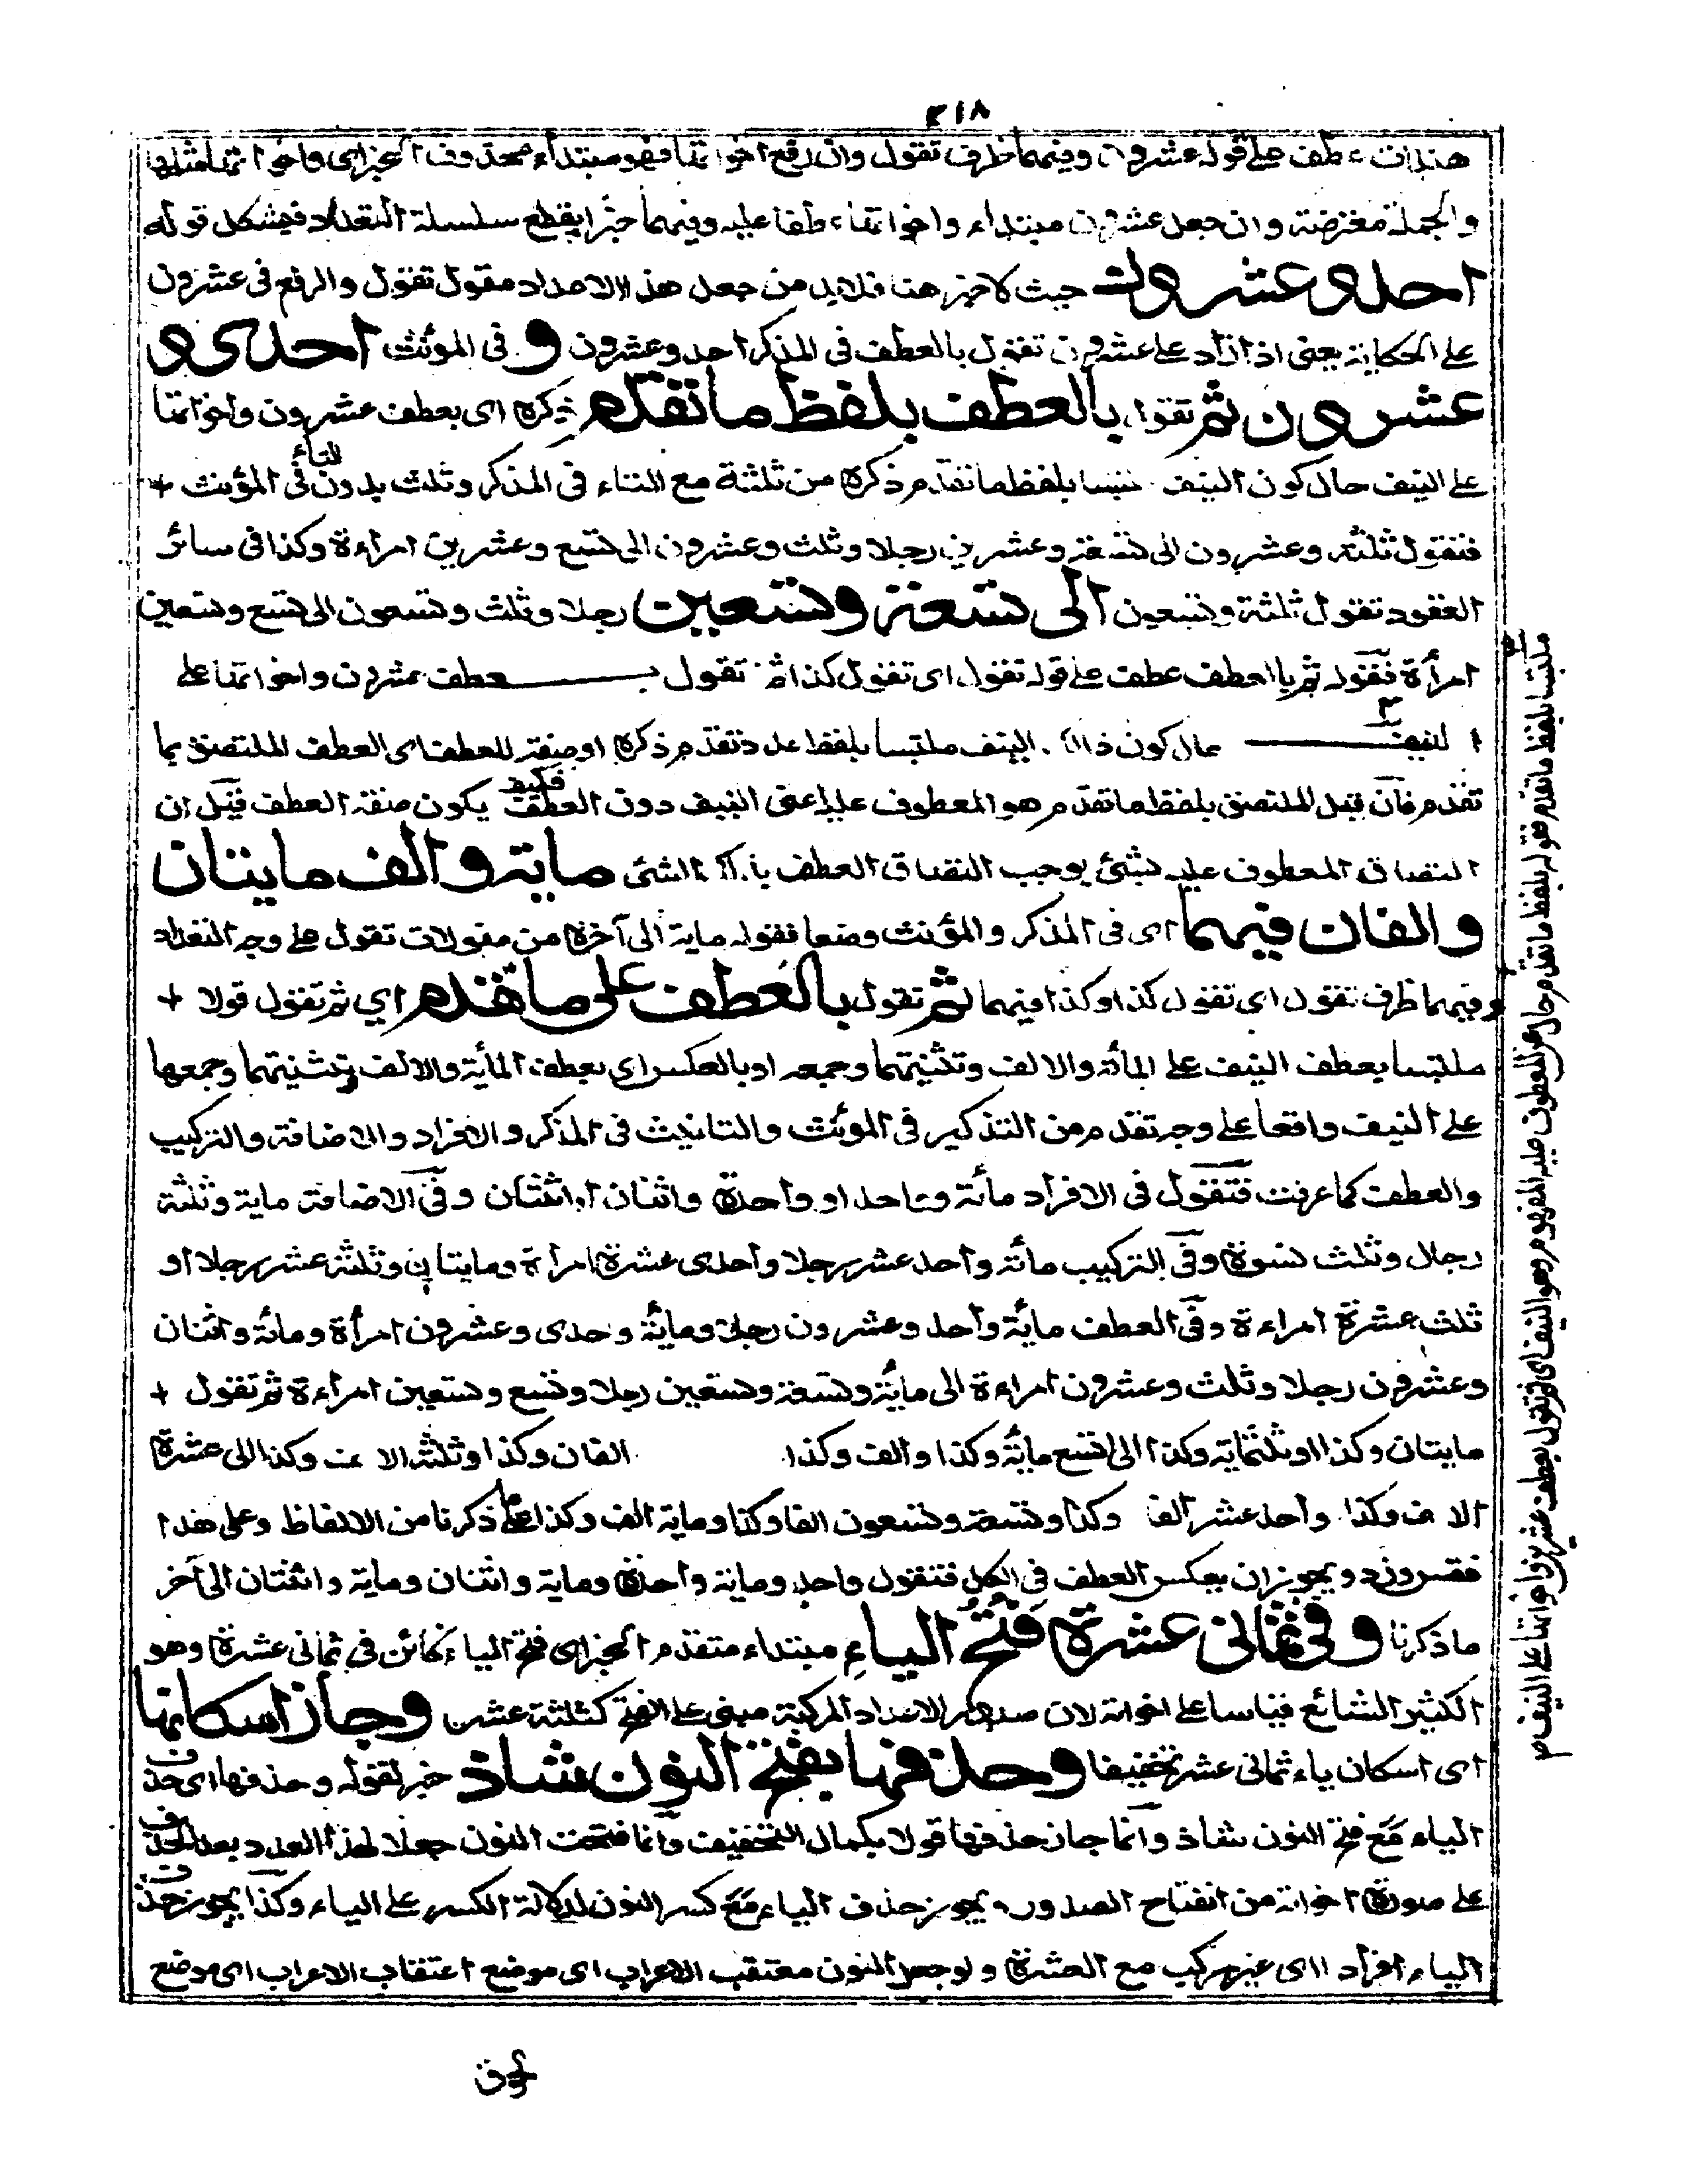 ٤١٨
عطف على قوله عشرون وفيهما ظرف تقول وان رفع اخواتها فهو مبتداء محذوف الخبر اى واخواتها مثلها
والجملة معترضة وان جعل عشرون مبتداء واخواتها عطفا عليه وفيهما خبرا يقطع سلسلة التعداد فيشكل قوله
احد وعشرون حيث لا خبر هنا فلابد من جعل هذا الاعداد مقول تقول والرفع فى عشرون
على الحكاية يعنى اذا زاد على عشرون تقول بالعطف فى المذكر احد وعشرون و فى المونث احدى و
عشرون ثم تقول بالعطف بلفظ ما تقدم ذكره اى بعطف عشرون واخواتها
على النيف حال كون النيف بلفظ ما تقدم ذكره من ثلثة مع التاء فى المذكر وثلث بدون التاء فى المؤنث +
فتقول ثلثة وعشرون الى تسعة وعشرين رجلا وثلث وعشرون الى تسع وعشرين امراءة وكذا فى سائر
العقود تقول ثلثة وتسعين الى تسعة وتسعين رجلا وثلث وتسعون الى تسع وتسعين
امرأة فقوله ثم بالعطف عطف على قوله تقول اى تقول كذا ثم تقول بـ عطف عشرون واخواتها على
النيف حال كون ذلك النيف ملتبسا بلفظ عدد تقدم ذكره او صفة للعطف اى العطف الملتصق بما
تقدم فان قيل الملتصق بلفظ ما تقدم هو المعطوف عليه اعنى النيف دون العطف فكيف يكون صفة العطف قيل ان
التصاق المعطوف عليه بشئ يوجب التصاق العطف بذلك الشئ ماية والف مايتان
والفان فيهما اى فى المذكر والمؤنث وضعا فقوله ماية الى آخره من مقولات تقول على وجه التعداد
وفيهما ظرف تقول اى تقول كذا وكذا فيهما ثم تقول بالعطف على ما تقدم اي ثم تقول قولا +
ملتبسا بعطف النيف على المأة والالف وتثنيتهما وجمعه او بالعكس اى بعطف المأية والالف وتثنيتهما وجمعها
على النيف واقعا على وجه تقدم من التذكير فى المونث والتانيث فى المذكر والافراد والاضافة والتركيب
والعطف كما عرفت فتقول فى الافراد مائة واحد او واحدة واثنان او اثنتان وفى الاضافة ماية وثلثة
رجال وثلث نسوة وفى التركيب مائة واحد عشر رجلا واحدى عشرة امراءة ومايتان وثلثة عشر رجلا او
ثلث عشرة امراءة وفى العطف مايئة واحد وعشرون رجلا ومايئة وحدى وعشرون امرأة ومائة واثنان
وعشرون رجلا وثلث وعشرون امراءة الى مايئة وتسعة وتسعين رجلا وتسع وتسعين امراءة ثم تقول +
مايتان وكذا او ثلثماية وكذا الى تسع مائة وكذا والف وكذا الفان وكذا وثلثة الاف وكذا الى عشرة
الاف وكذا واحد عشر الفا وكذا وتسعة وتسعون الفا وكذا وماية الف وكذا على ما ذكرنا من الالفاظ وعلى هذا
فقس وزد ويجوز ان يعكس العطف فى الكل فتقول واحد وماية واحدة وماية واثنان وماية واثنتان الى آخر
ما ذكرنا وفى ثمانى عشرة فتح الياء مبتداء متقدم الخبر اى فتح الياء كائن فى ثمانى عشرة وهو
الكثير الشائع قياسا على اخواته لان صدور الاعداد المركبة مبنى على الفتح كثلثة عشر وجاز اسكانها
اى اسكان ياء ثمانى عشر تخفيفا وحذفها بفتح النون شاذ خبر لقوله وحذفها اى حذف
الياء مع فتح النون شاذ وانما جاز حذفها قولا بكمال التخفيف وانما فتحت النون جعلا لهذا العدد بعد الحذف
على صورة اخواته من انفتاح الصدور يجوز حذف الياء مع كسر النون لدلالة الكسر على الياء وكذا يجوز حذف
الياء افرادا اى غير مركب مع العشرة ولو جعل النون معتقب الاعراب اى موضع اعتقاب الاعراب اى موضع
ملتبسا بلفظ ما تقدم فقوله بلفظ ما تقدم حال عن المعطوف عليه المفهوم وهو النيف اى ثم تقول بعطف عشرون واخواتها على النيف